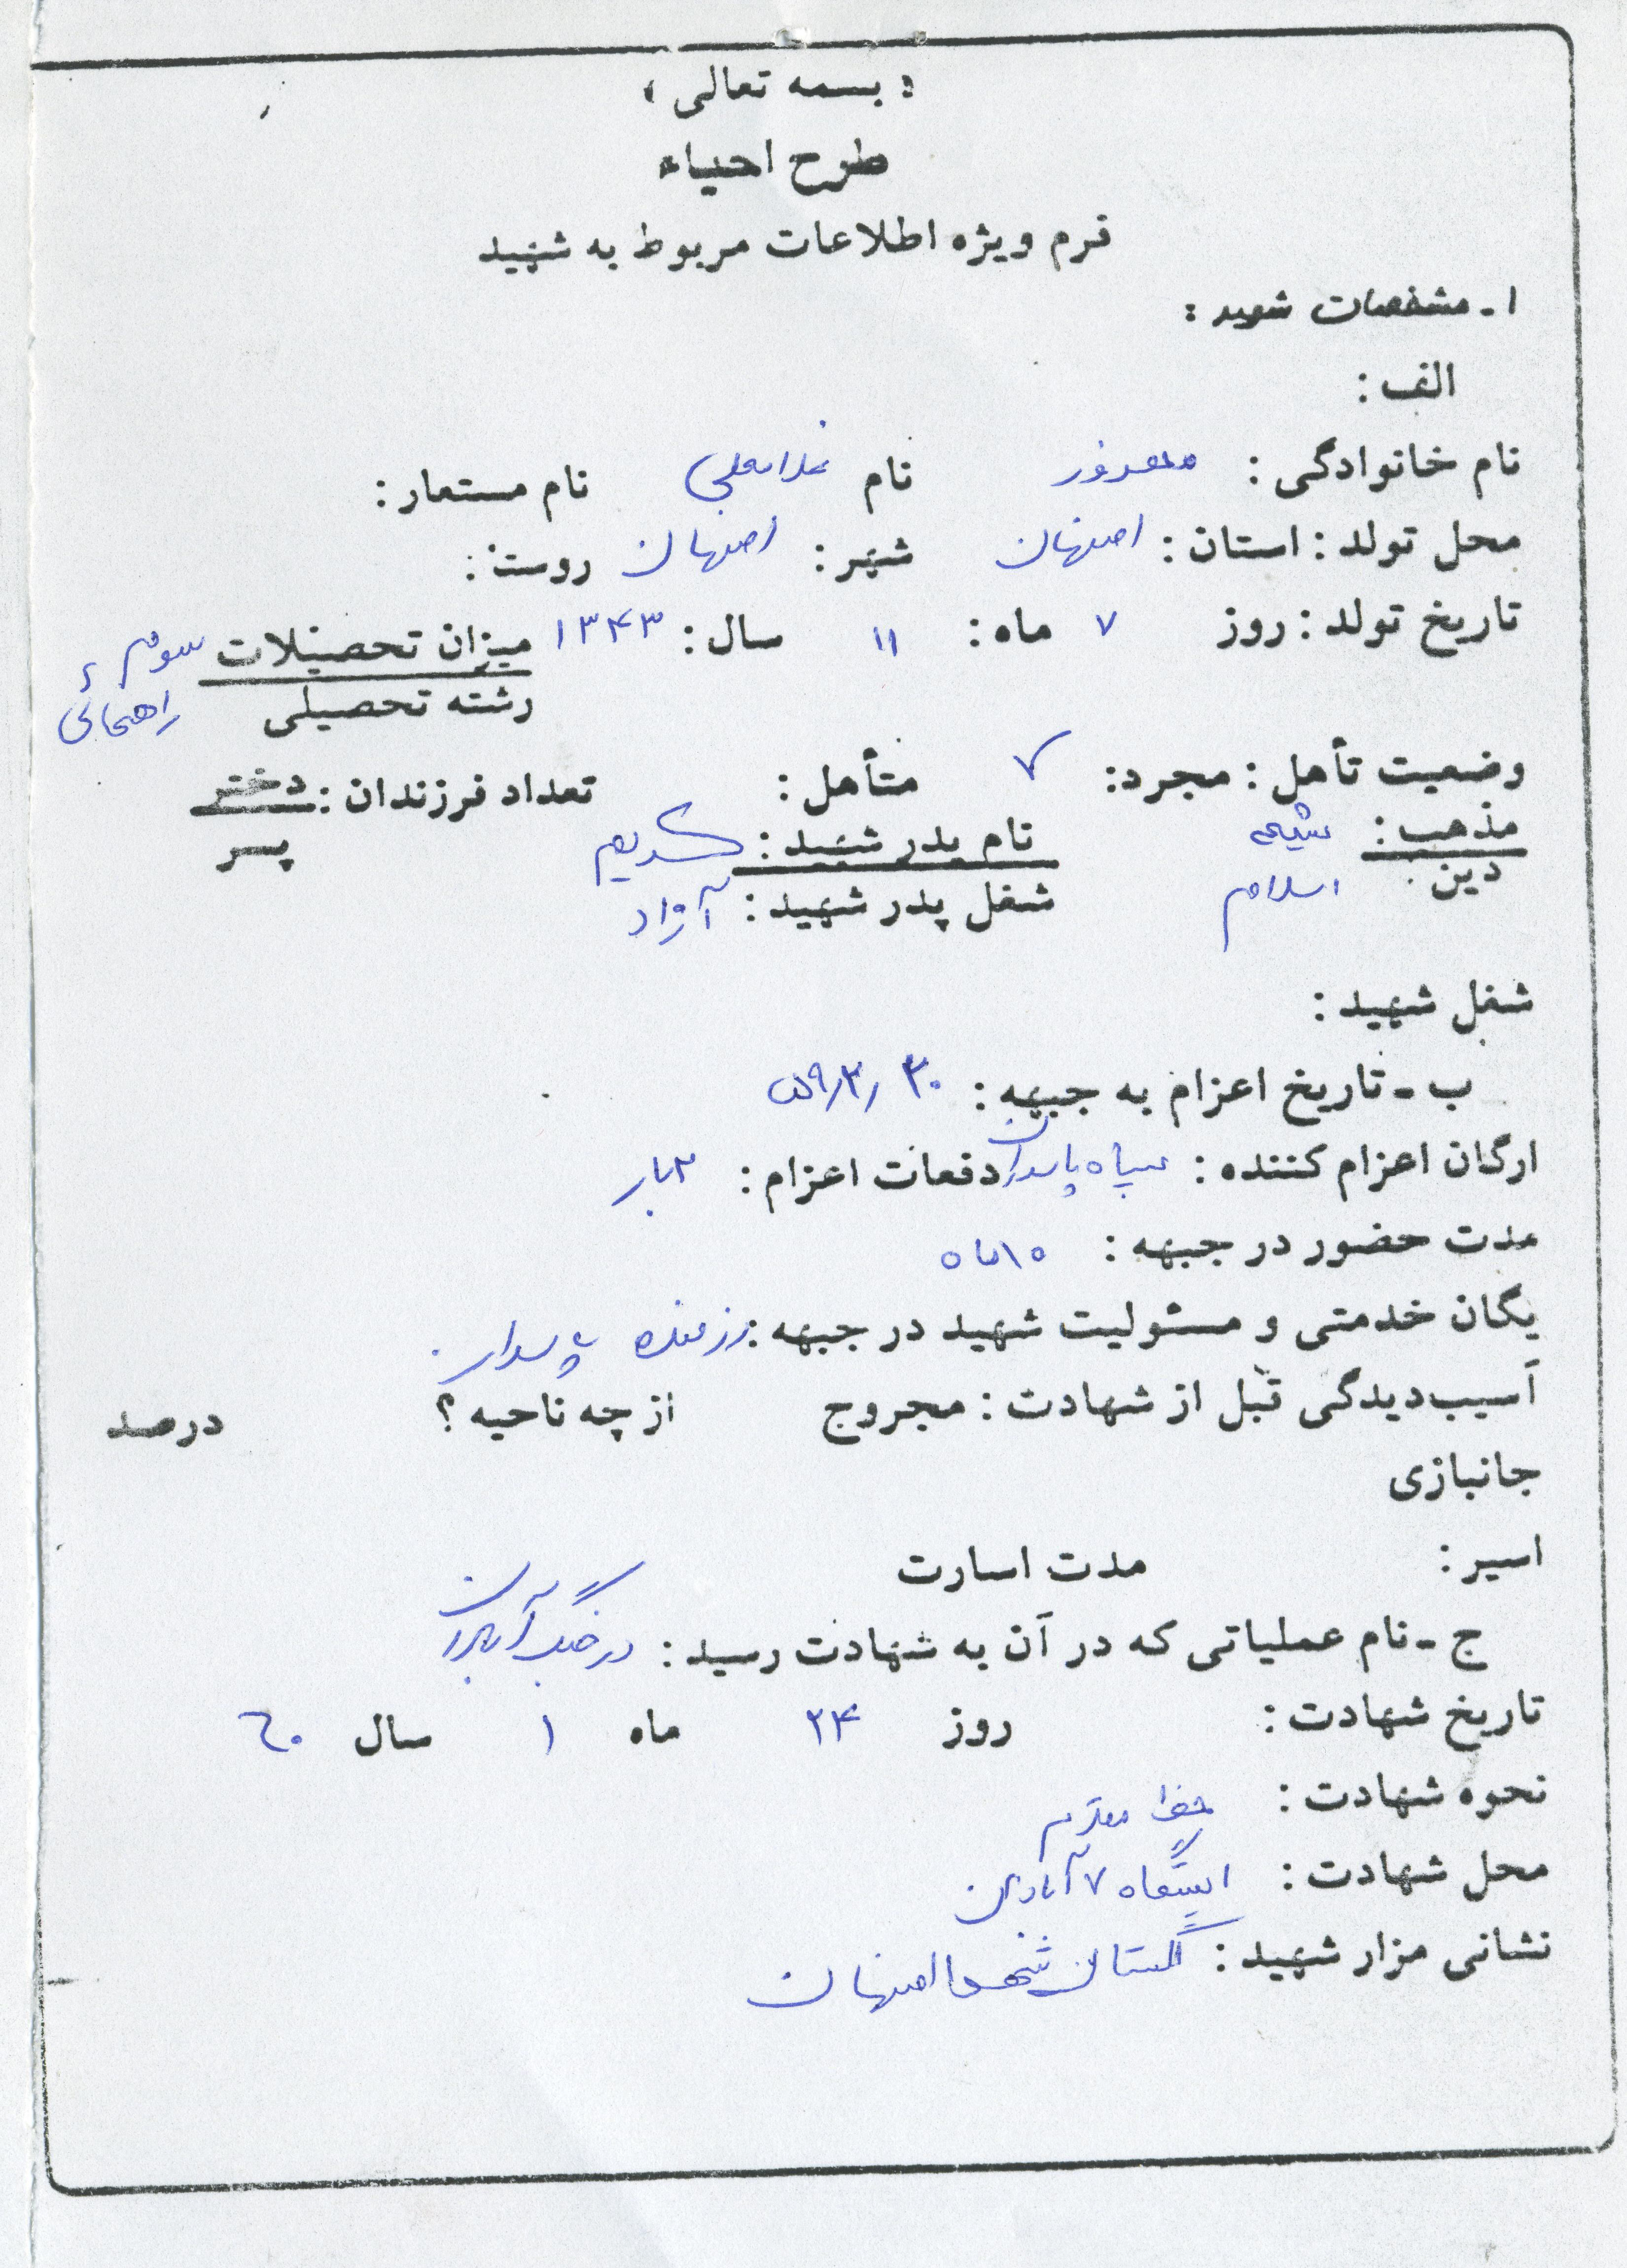 « بسمه تعالی »
طرح احیاء
فرم ویژه اطلاعات مربوط به شهید
۱ـ مشخصات شهید :
الف :
نام خانوادگی : نام غلامعلی نام مستعار :
محل تولد : استان : اصفهان شهر : اصفهان روستا :
تاریخ تولد : روز ۷ ماه : ۱۱ سال : ۱۳۴۳ میزان تحصیلات سوم
رشته تحصیلی راهنمائی
وضعیت تأهل : مجرد : ✓ متأهل : تعداد فرزندان : دختر
پسر
مذهب : شیعه نام پدر شهید : کریم
دین : اسلام شغل پدر شهید : آزاد
شغل شهید :
ب ـ تاریخ اعزام به جبهه :
ارگان اعزام کننده : سپاه پاسداران دفعات اعزام : بار
مدت حضور در جبهه : ۱۰ ماه
یگان خدمتی و مسئولیت شهید در جبهه : رزمنده پاسدار.
آسیب‌دیدگی قبل از شهادت : مجروح از چه ناحیه ؟ درصد
جانبازی
اسیر : مدت اسارت
ج ـ نام عملیاتی که در آن به شهادت رسید : در جنگ آبادان
تاریخ شهادت : روز ۲۴ ماه ۱ سال ۶۰
نحوه شهادت : خط مقدم
محل شهادت : ایستگاه ۷ آبادان
نشانی مزار شهید : گلستان شهدا اصفهان